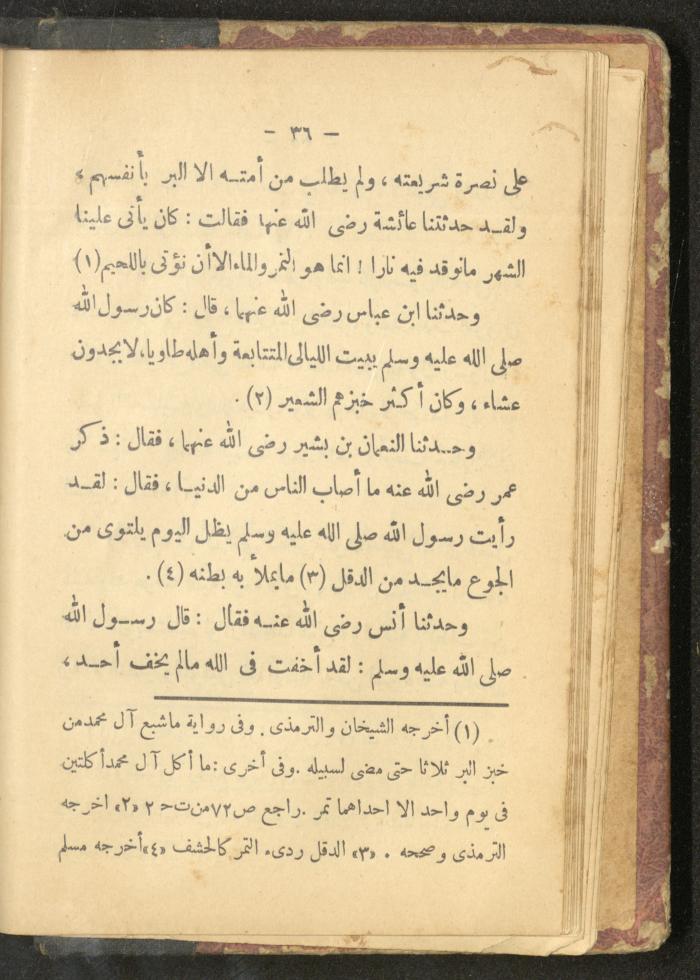 — ٣٦ —
على نصرة شريعته ، ولم يطلب من أمتـه الا البر بأنفسهم ،
ولقـد حدثتنا عائشة رضى الله عنها فقالت : كان يأتى علينا
الشهر مانوقد فيه نارا ! انما هو التمر والماء الا أن نؤتى باللحيم (١)
وحدثنا ابن عباس رضى الله عنهما ، قال : كان رسول الله
صلى الله عليه وسلم يبيت الليالى المتتابعة وأهله طاويا، لا يجدون
عشاء ، وكان أكثر خبزهم الشعير (٢) .
وحـدثنا النعمان بن بشير رضى الله عنهما ، فقال : ذكر
عمر رضى الله عنه ما أصاب الناس من الدنيـا ، فقال : لقـد
رأيت رسول الله صلى الله عليه وسلم يظل اليوم يلتوى من
الجوع مايجـد من الدقل (٣) مايملأ به بطنه (٤) .
وحدثنا أنس رضى الله عنـه فقال : قال رسـول الله
صلى الله عليه وسلم : لقد أخفت فى الله مالم يخف أحـد ،
(١) أخرجه الشيخان والترمذى . وفى رواية ماشبع آل محمد من
خبز البر ثلاثا حتى مضى لسبيله . وفى أخرى : ما أكل آل محمد أكلتين
فى يوم واحد الا احداهما تمر . راجع ص ٧٢ من ت ح ٢ «٢» اخرجه
الترمذى وصححه . «٣» الدقل ردىء التمر كالحشف «٤» أخرجه مسلم